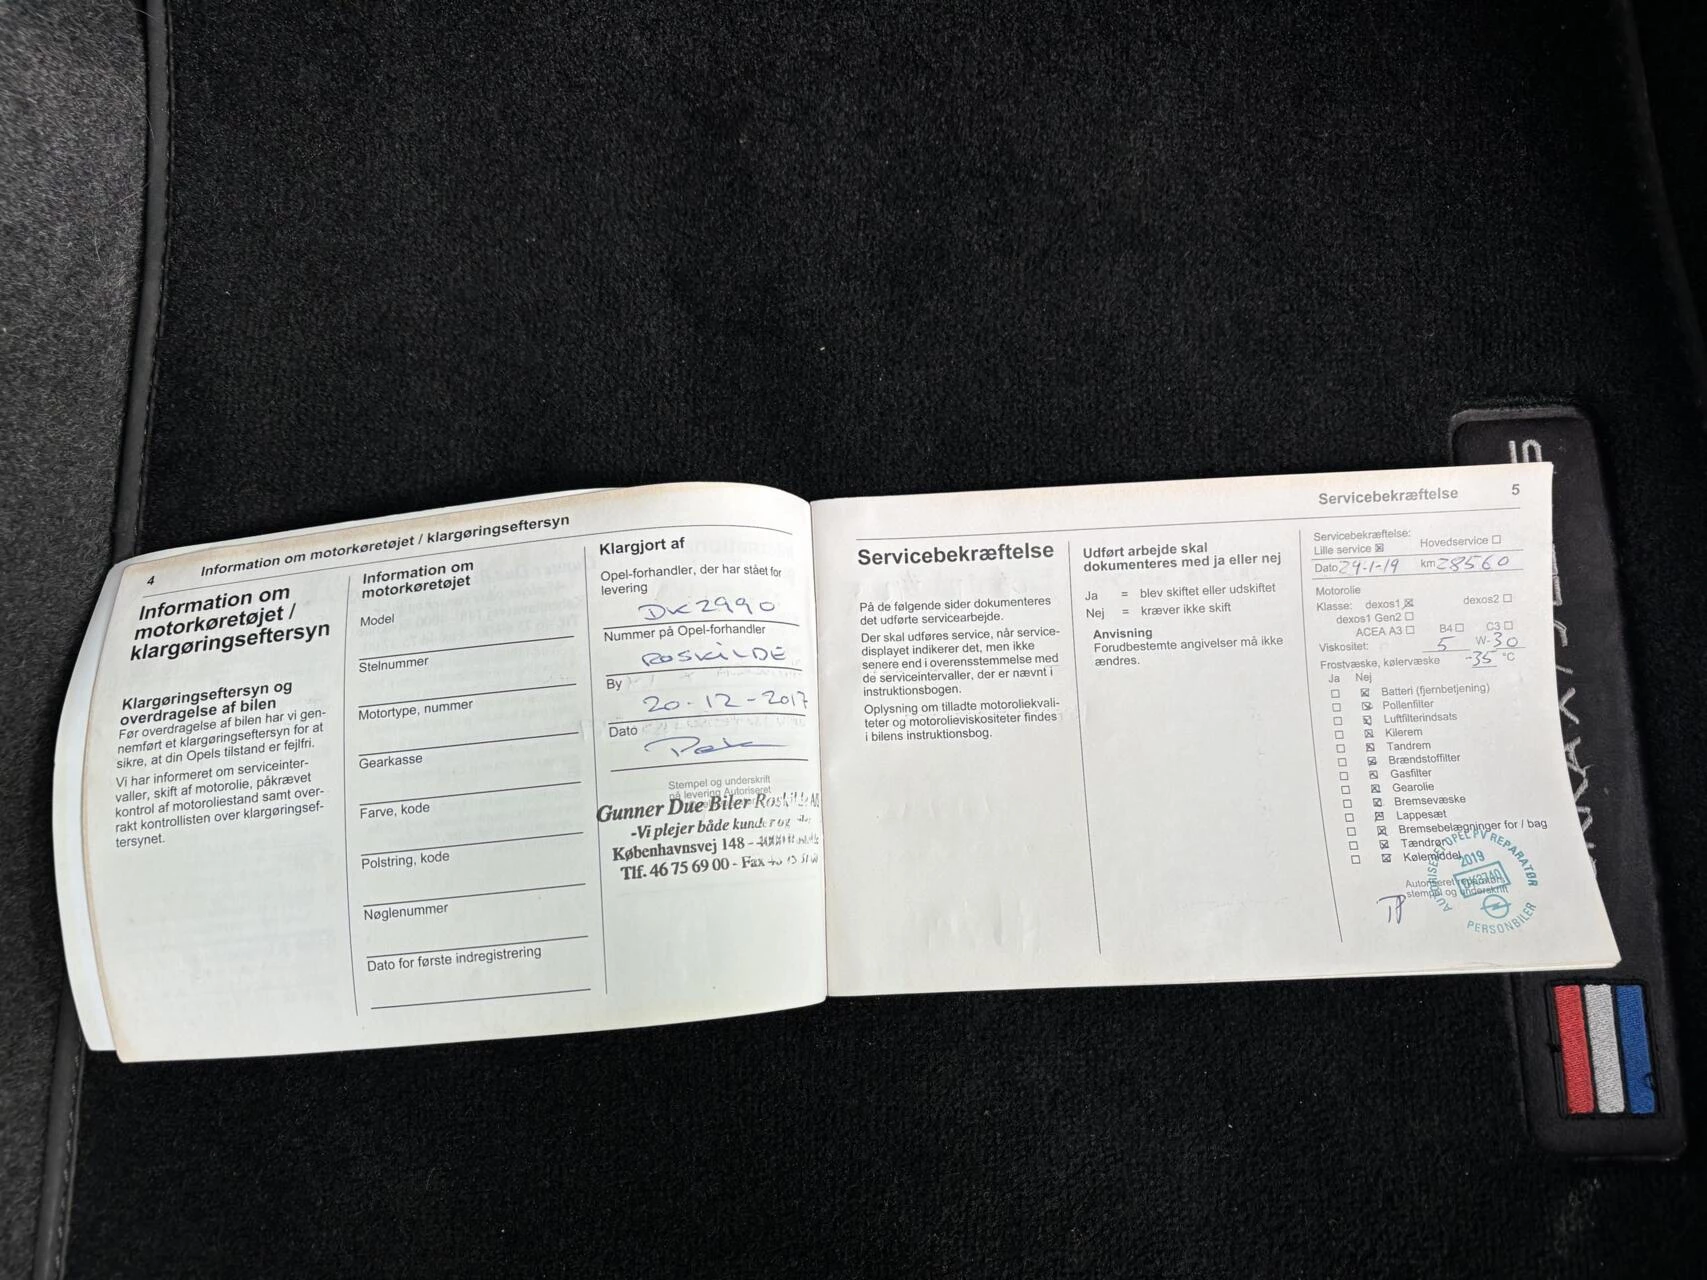 4
Information om motorkøretøjet / klargøringseftersyn
Information om
motorkøretøjet /
klargøringseftersyn
Klargøringseftersyn og
overdragelse af bilen
Før overdragelse af bilen har vi gen-
nemført et klargøringseftersyn for at
sikre, at din Opels tilstand er fejlfri.
Vi har informeret om serviceinter-
valler, skift af motorolie, påkrævet
kontrol af motoroliestand samt over-
rakt kontrollisten over klargøringsef-
tersynet.
Information om
motorkøretøjet
Model
Stelnummer
Motortype, nummer
Gearkasse
Farve, kode
Polstring, kode
Nøglenummer
Dato for første indregistrering
Klargjort af
Opel-forhandler, der har stået for
levering
DK2990
Nummer på Opel-forhandler
ROSKILDE
By
20-12-2017
Dato
Stempel og underskrift
på levering Autoriseret
Gunner Due Biler Roskilde A/S
-Vi plejer både kunder og
Københavnsvej 148 - 4000
Tlf. 46 75 69 00 - Fax
Servicebekræftelse
5
Servicebekræftelse
På de følgende sider dokumenteres
det udførte servicearbejde.
Der skal udføres service, når service-
displayet indikerer det, men ikke
senere end i overensstemmelse med
de serviceintervaller, der er nævnt i
instruktionsbogen.
Oplysning om tilladte motoroliekvali-
teter og motorolieviskositeter findes
i bilens instruktionsbog.
Udført arbejde skal
dokumenteres med ja eller nej
Ja = blev skiftet eller udskiftet
Nej = kræver ikke skift
Anvisning
Forudbestemte angivelser må ikke
ændres.
Servicebekræftelse:
Lille service ☒ Hovedservice ☐
Dato 29-1-19 km 28560
Motorolie
Klasse: dexos1 ☒ dexos2 ☐
dexos1 Gen2 ☐
ACEA A3 ☐ B4 ☐ C3 ☐
Viskositet: 5 W-30
Frostvæske, kølervæske -35 °C
Ja Nej
☐ ☒ Batteri (fjernbetjening)
☐ ☒ Pollenfilter
☐ ☒ Luftfilterindsats
☐ ☒ Kilerem
☐ ☒ Tandrem
☐ ☒ Brændstoffilter
☐ ☒ Gasfilter
☐ ☒ Gearolie
☐ ☒ Bremsevæske
☐ ☒ Lappesæt
☐ ☒ Bremsebelægninger for / bag
☐ ☒ Tændrør
☐ ☒ Kølemiddel
Autoriseret reparatørs
stempel og underskrift
AUTORISERET OPEL PV REPARATØR
2019
DK3740
PERSONBILER